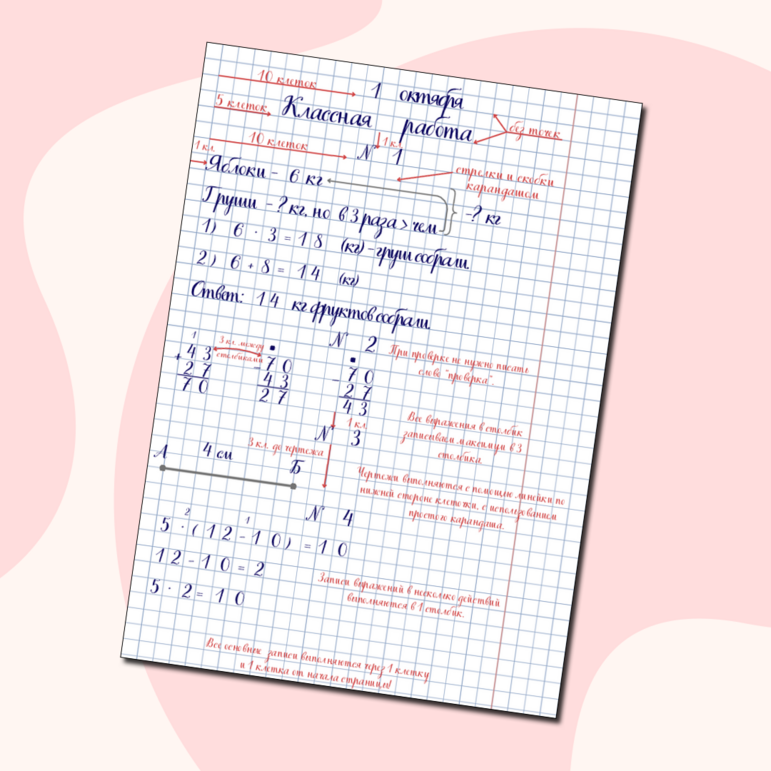 10 клеток 1 октября
5 клеток Классная работа без точек
10 клеток № 1 1 кл
1 кл. Яблоки - 6 кг
стрелки и скобки
карандашом
Груши - ? кг, но в 3 раза > чем
- ? кг
1) 6 · 3 = 18 (кг) - груш собрали.
2) 6 + 8 = 14 (кг)
Ответ: 14 кг фруктов собрали.
№ 2
1
+ 43
27
70
3 кл. между
столбиками
- 70
43
27
- 70
27
43
При проверке не нужно писать
слово "проверка".
1 кл
Все выражения в столбик
записываем максимум в 3
столбика.
№ 3
А 4 см Б
3 кл. до чертежа
Чертежи выполняются с помощью линейки по
нижней стороне клеточки, с использованием
простого карандаша.
№ 4
2 1
5 · (12 - 10) = 10
12 - 10 = 2
5 · 2 = 10
Записи выражений в несколько действий
выполняются в 1 столбик.
Все основные записи выполняются через 1 клетку
и 1 клетка от начала страницы!